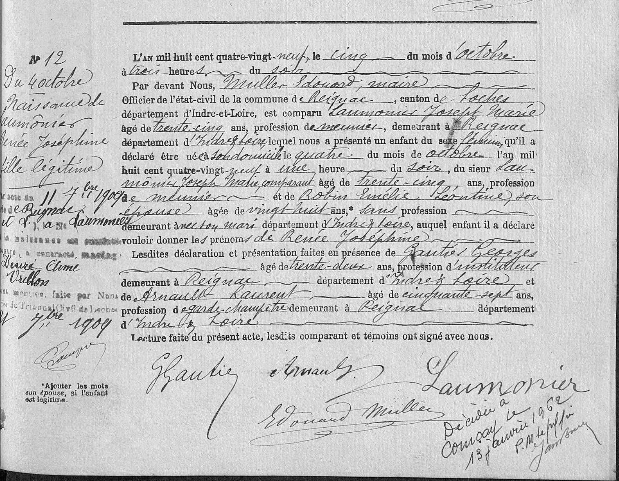 N° 12
Du 4 octobre
Naissance de
Laumônier
Renée Joséphine
fille légitime
11 7bre 1909
Reignac
Laumonier
Désiré Aimé
7bre 1909
*Ajouter les mots
son épouse, si l'enfant
est légitime.
L'AN mil huit cent quatre-vingt-neuf, le cinq du mois d'octobre
à trois heures du soir
Par devant Nous, Muller Edouard, maire
Officier de l'état-civil de la commune de Reignac, canton de Loches
département d'Indre-et-Loire, est comparu Laumonier Joseph Marie
âgé de trente-cinq ans, profession de meunier, demeurant à Reignac
département d'Indre et Loire, lequel nous a présenté un enfant du sexe féminin, qu'il a
déclaré être né à son domicile le quatre du mois de octobre l'an mil
huit cent quatre-vingt-neuf à une heure du soir, du sieur Lau-
mônier Joseph Marie comparant âgé de trente-cinq ans, profession
de meunier et de Robin Emélie Léontine, son
épouse âgée de vingt huit ans, sans profession
demeurant avec son mari département d'Indre et Loire, auquel enfant il a déclaré
vouloir donner les prénoms de Renée Joséphine
Lesdites déclaration et présentation faites en présence de Gautier Georges
âgé de trente-deux ans, profession d'instituteur
demeurant à Reignac département d'Indre et Loire et
de Arnault Laurent âgé de cinquante sept ans,
profession de garde champêtre demeurant à Reignac département
d'Indre et Loire
Lecture faite du présent acte, lesdits comparant et témoins ont signé avec nous.
G Gautier Arnault Laumonier
Edouard Muller
Décédée à
le
13 janvier 1962